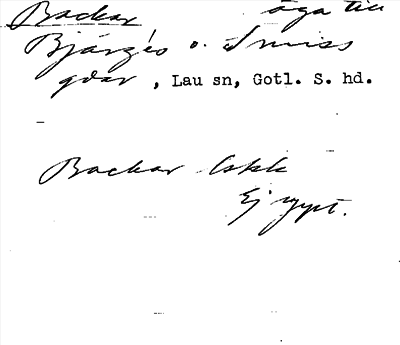 Backar äga till
Bjärges o. Smiss
gdar, Lau sn, Gotl. S. hd.
Backar
Ej uppt.